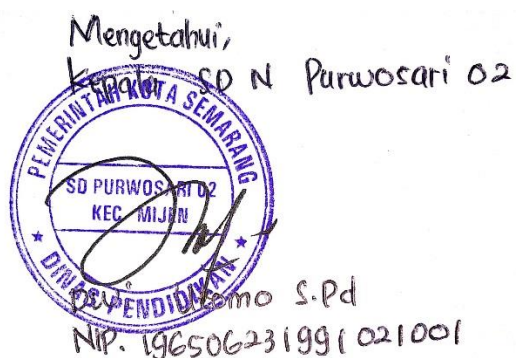 Mengetahui,
Kepala SD N Purwosari 02
PEMERINTAH KOTA SEMARANG
SD PURWOSARI 02
KEC. MIJEN
DINAS PENDIDIKAN
Utomo S.Pd
NIP. 196506231991021001